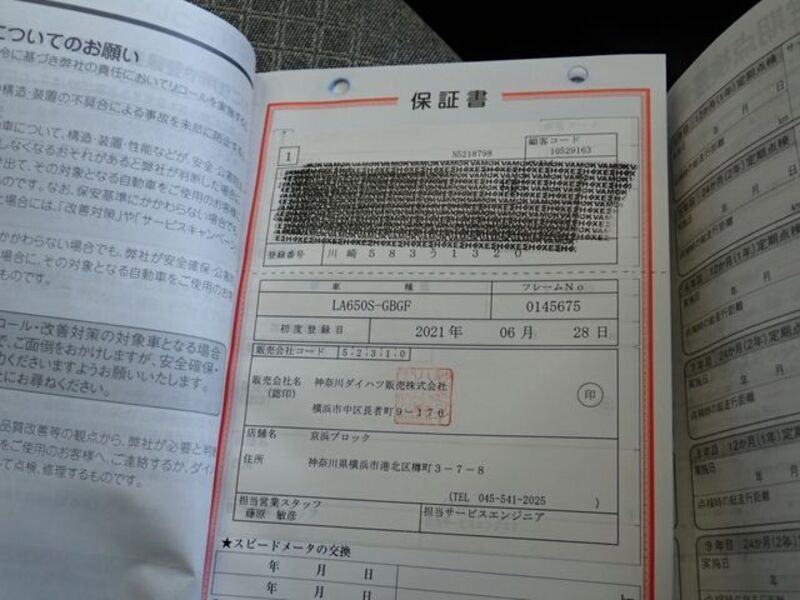 についてのお願い
令に基づき弊社の責任においてリコールを実施する
構造・装置の不具合による事故を未然に防止する
車について、構造・装置・性能などが、安全・公害防
しなくなるおそれがあると弊社が判断した場合に
出て、その対象となる自動車をご使用のお客様に
ものです。なお、保安基準にかかわらない場合でも
場合には、「改善対策」や「サービスキャンペーン
かかわらない場合でも、弊社が安全確保・公害
場合に、その対象となる自動車をご使用のお
ものです。
コール・改善対策の対象車となる場合
で、ご面倒をおかけしますが、安全確保・
力くださいますようお願いいたします。
にお尋ねください。
品質改善等の観点から、弊社が必要と判断
をご使用のお客様へ、ご連絡するか、ダイ
て点検、修理するものです。
保証書
1
N5218798
顧客コード
10529163
登録番号 川崎 583 い 1320
車種 フレームNo
LA650S-GBGF 0145675
初度登録日 2021年 06月 28日
販売会社コード 52310
販売会社名 神奈川ダイハツ販売株式会社
(認印) 印
横浜市中区長者町9-176
店舗名 京浜ブロック
住所 神奈川県横浜市港北区樽町3-7-8
(TEL 045-541-2025 )
担当営業スタッフ 担当サービスエンジニア
藤原 敏彦
★スピードメータの交換
年 月 日
年 月 日 km
12か月(1年)定期点検
年 月 日
km
24か月(2年)定期点検
年 月 日
点検時の総走行距離
12か月(1年)定期点検
実施日 年 月
点検時の総走行距離
7年目 24か月(2年)定期点検
実施日 年 月
点検時の総走行距離
8年目 12か月(1年)定期
実施日 年 月
点検時の総走行距離
9年目 24か月(2年)
実施日 年